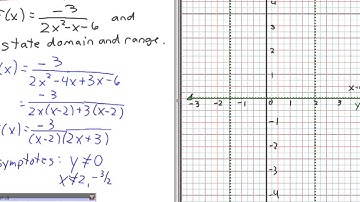 F(x) = -3 / 2x²-x-6 and
state domain and range.
(x) = -3 / 2x²-4x+3x-6
= -3 / 2x(x-2)+3(x-2)
F(x) = -3 / (x-2)(2x+3)
symptotes: y≠0
x≠2, -3/2
x-
y
4
2
-3 -2 -1 0 1 2 3
-2
-4